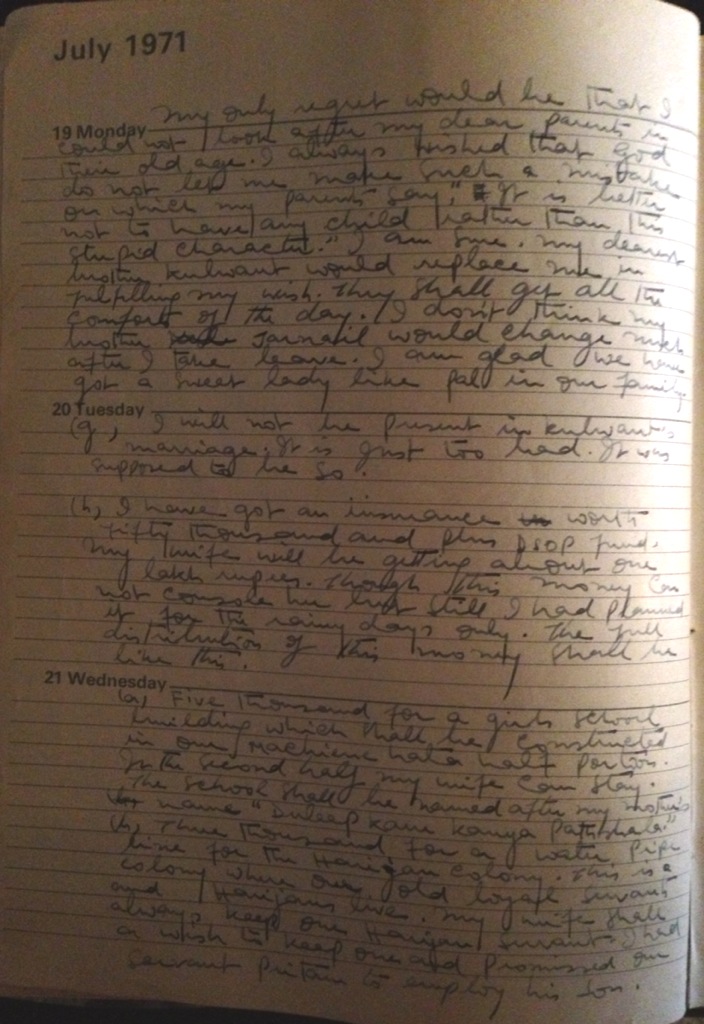 July 1971
My only regret would be that I
19 Monday
could not look after my dear parents in
their old age. I always wished that God
do not let me make such a mistake
on which my parents say, "It is better
not to have any child rather than this
stupid character." I am sure. My dearest
brother Kulwant would replace me in
fulfilling my wish. They shall get all the
comforts of the day. I don't think my
brother Jarnail would change much
after I take leave. I am glad we have
got a sweet lady like Pal in our family
20 Tuesday
(g, I will not be present in Kulwant's
marriage. It is just too bad. It was
supposed to be so.
(h, I have got an insurance worth
fifty thousand and plus DSOP fund.
My wife will be getting about one
lakh rupees. Though this money can
not console her but still I had planned
it for the rainy days only. The full
distribution of this money shall be
like this.
21 Wednesday
(a, Five thousand for a girls school
building which shall be constructed
in our hata half portion.
In the second half my wife can stay.
The school shall be named after my mother's
name "Duleep Kaur Kanya Pathshala"
(b, Three thousand for a water pipe
line for the Harijan Colony. This is a
colony where our old loyal servants
and Harijans live. My wife shall
always keep one Harijan servant. I had
a wish to keep one and promised our
servant Pritam to employ his son.